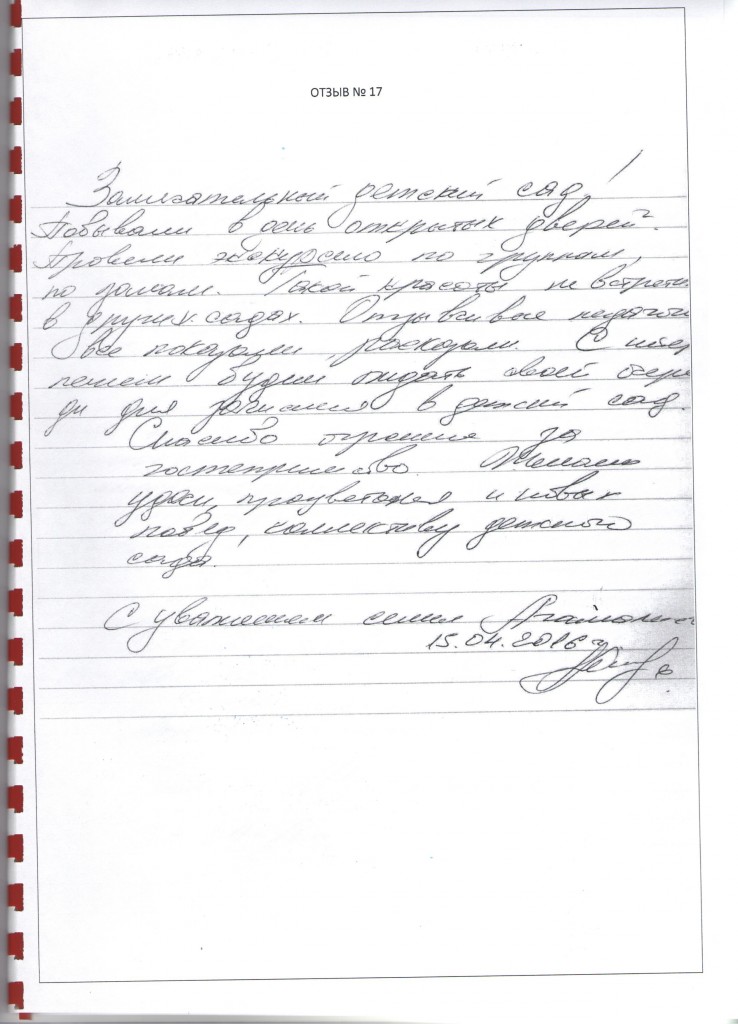 ОТЗЫВ № 17
Замечательный детский сад!
Побывали в день открытых дверей.
Провели экскурсию по группам,
по залам. Такой красоты не встретишь
в других садах. Отзывчивые педагоги
все показали, расказали. С нетер
пением будем ждать своей очере
ди для зачисления в детский сад.
Спасибо огромное за
гостеприимство. Желаем
удачи, процветания и новых
побед, коллективу детского
сада.
С уважением семья
15.04.2016 г